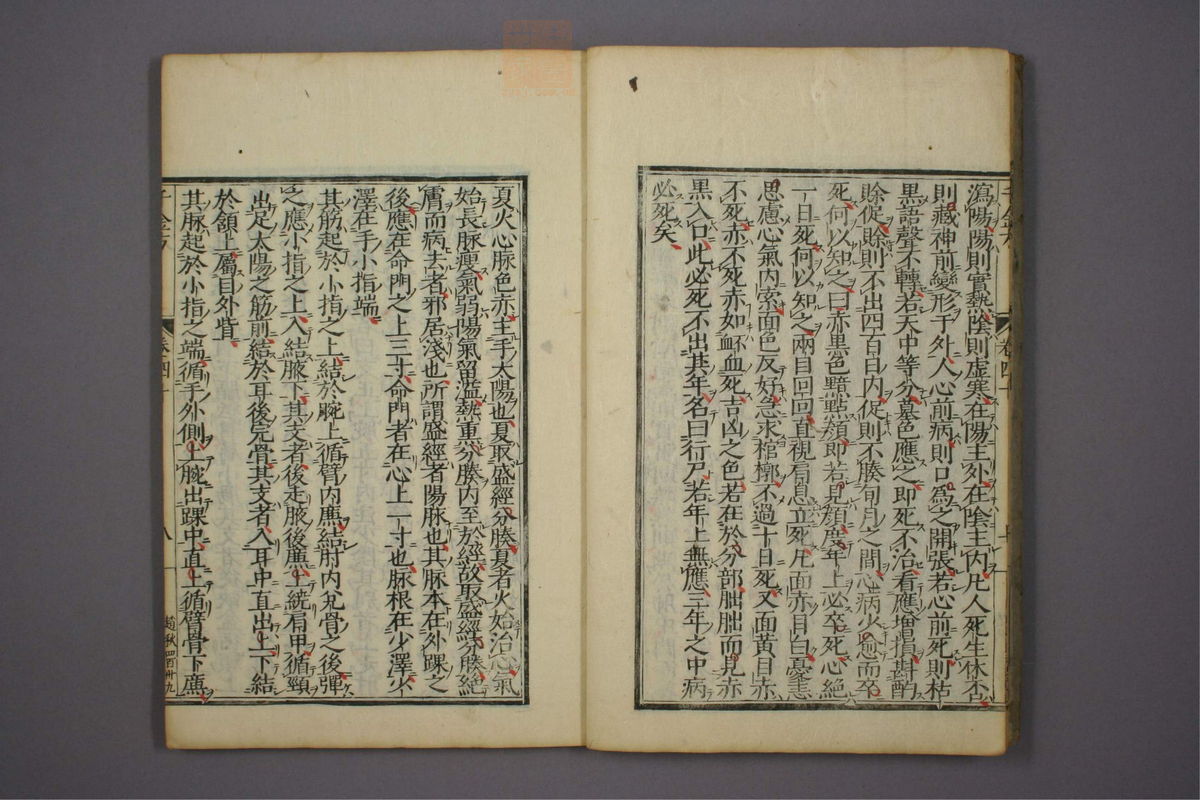 瀉陽陽則實熱陰則虛寒在陽主外在陰主内凡人死生休否
則藏神前變形于外人心前病則口爲之開張若心前死則枯
黑語聲不轉若天中等分墓色應之即死不治看應增損斟酌
賖促賖則不出四百日内促則不勝旬月之間心病少愈而卒
死何以知之曰赤黑色黯點如見顔度年上必卒死心絶
一日死何以知之兩目回回直視肩息立死凡面赤目白憂恚
思慮心氣内索面色反好急求棺槨不過十日死又面黄目赤
不死赤不死赤如衃血死吉凶之色若在於分部朏朏而見赤
黑入口此必死不出其年名曰行尸若年上無應三年之中病
必死矣
夏火心脉色赤主手太陽也夏取盛經分腠夏者火始治心氣
始長脉瘦氣弱陽氣留濫熱熏分腠内至於經故取盛經分腠絶
膚而病去者邪居淺也所謂盛經者陽脉也其脉本在外踝之
後應在命門之上三寸命門者在心上一寸也脉根在少澤少
澤在手小指端
其筋起於小指之上結於腕上循臂内廉結肘内兌骨之後彈
之應小指之上入結腋下其支者後走腋後廉上繞肩甲循頸
出足太陽之筋前結於耳後完骨其支者入耳中直出上下結
於頷上屬目外眥
其脉起於小指之端循手外側上腕出踝中直上循臂骨下廉
千金方
卷四十
八
趙秋四百卅九